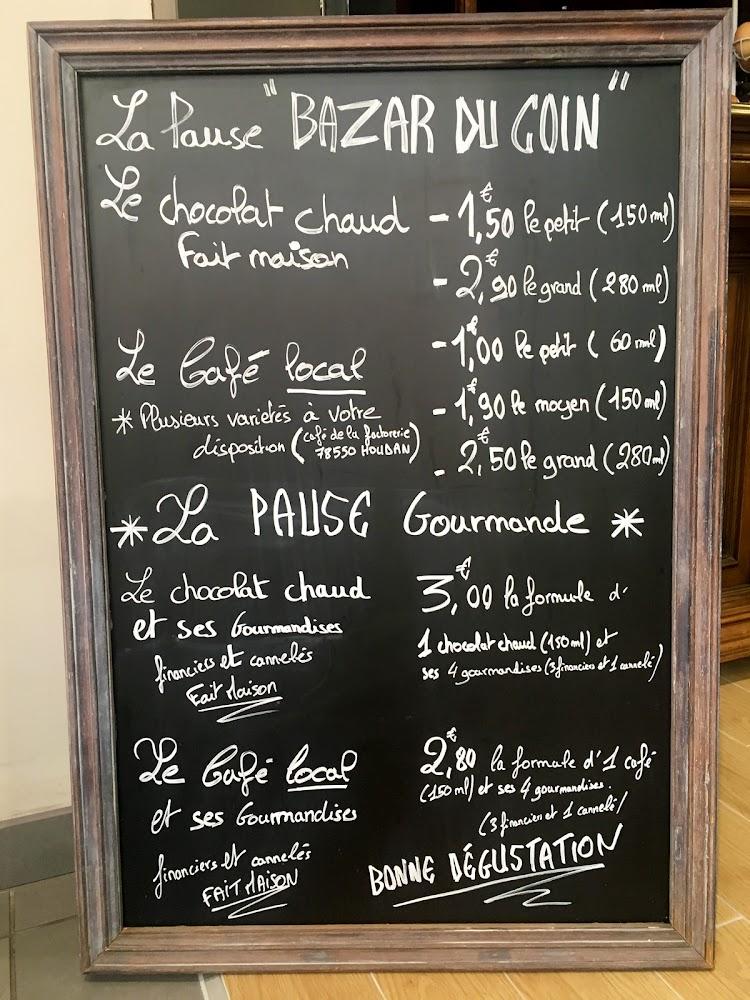 La Pause "BAZAR DU COIN"
Le chocolat chaud
Fait maison
- 1,50€ le petit (150 ml)
- 2,90€ le grand (280 ml)
Le Café local
* Plusieurs varietés à votre
disposition (café de la factorerie
78550 HOUDAN)
- 1,00€ le petit ( 60 ml)
- 1,90€ le moyen (150 ml)
- 2,50€ le grand (280 ml)
* La PAUSE Gourmande *
Le chocolat chaud
et ses Gourmandises
financiers et cannelés
Fait Maison
3,00€ la formule d'
1 chocolat chaud (150 ml) et
ses 4 gourmandises (3 financiers et 1 cannelé)
Le Café local
et ses Gourmandises
financiers et cannelés
FAIT MAISON
2,80€ la formule d'1 café
(150 ml) et ses 4 gourmandises.
(3 financiers et 1 cannelé)
BONNE DÉGUSTATION